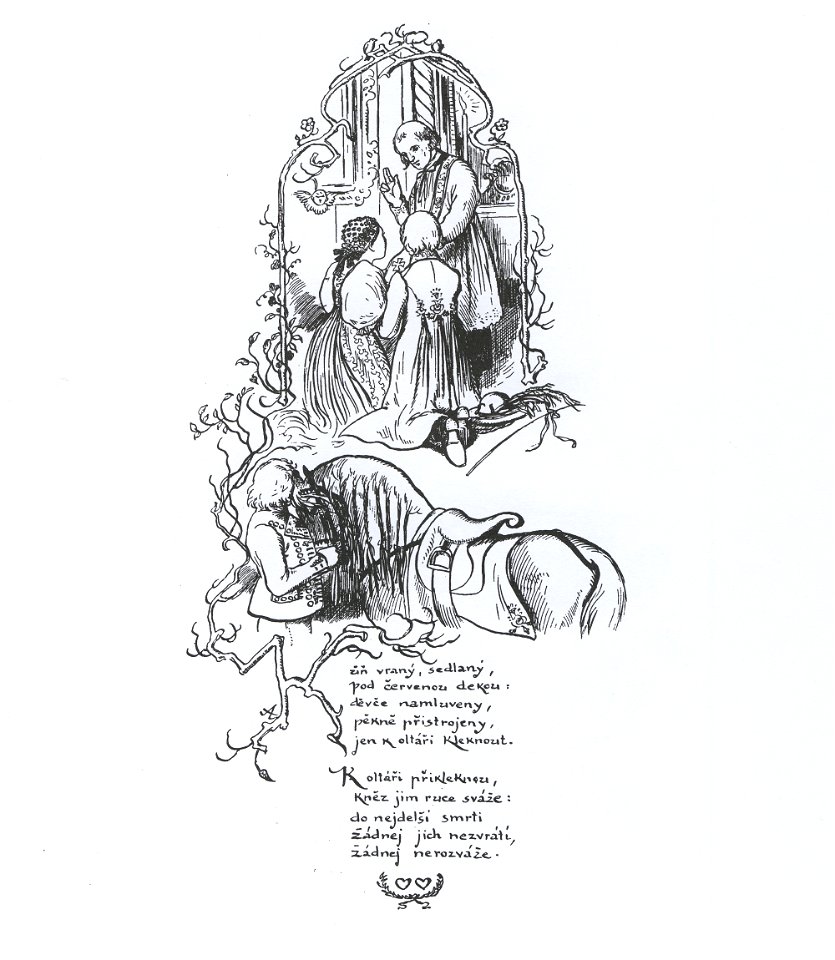 Kůň vraný, sedlaný,
pod červenou dekou:
děvče namluveny,
pěkně přistrojeny,
jen k oltáři kleknout.
K oltáři přikleknou,
kněz jim ruce sváže:
do nejdelší smrti
žádnej jich nezvrátí,
žádnej nerozváže.
52